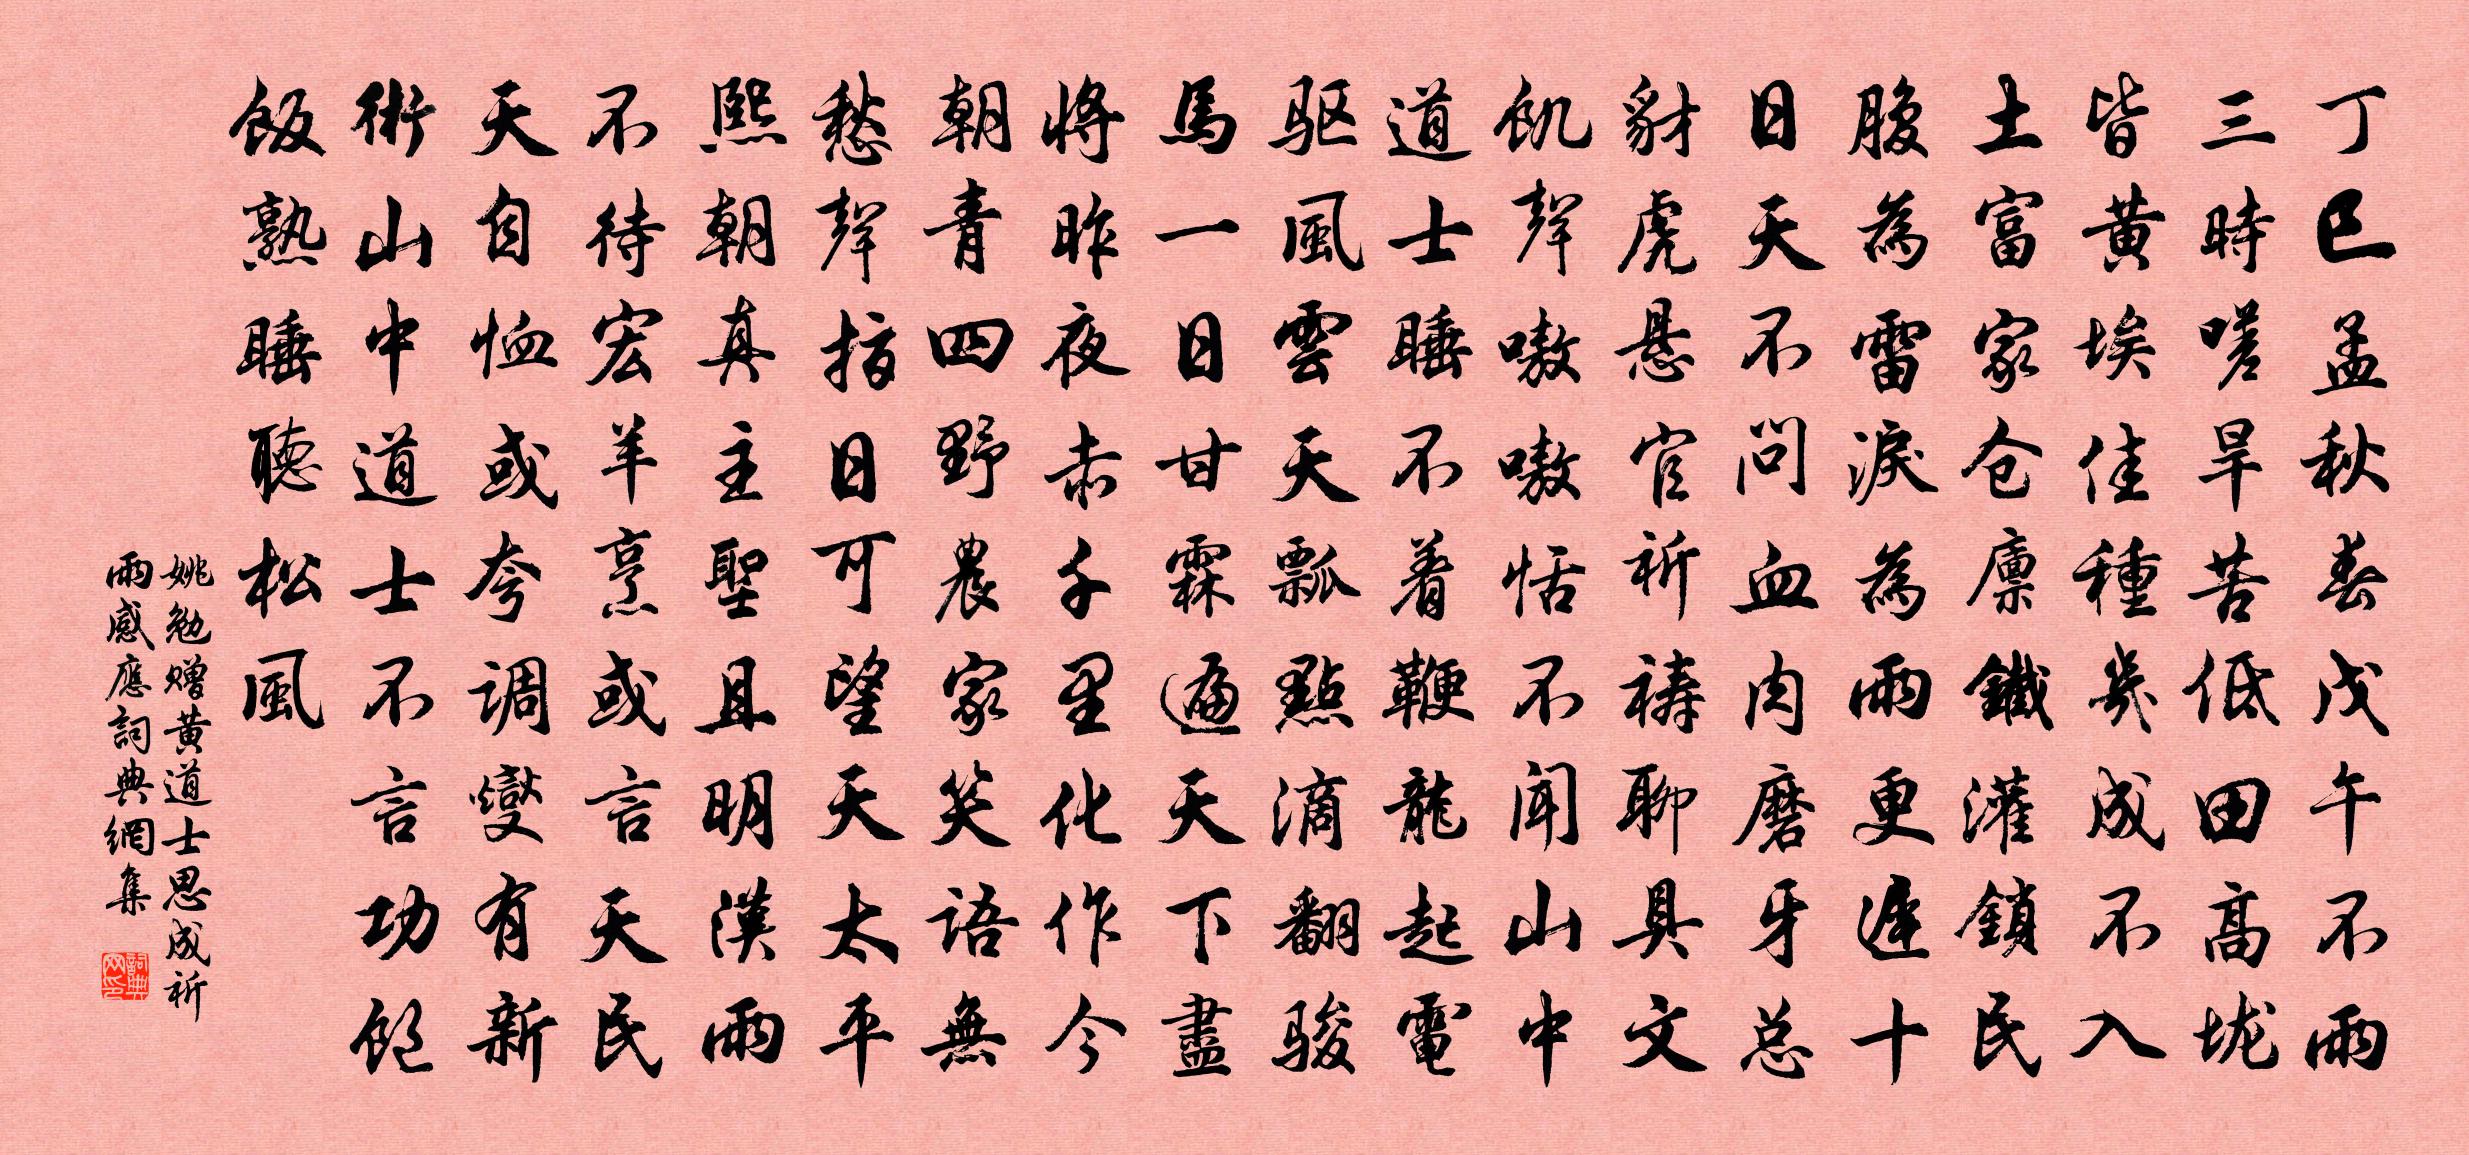 丁巳孟秋春戊午不雨
三時嗟旱苦低田高垅
皆黃埃佳種幾成不入
土富家仓廪鐵灌鎖民
腹為雷淚為雨更遲十
日天不問血肉磨牙总
豺虎悬官祈祷聊具文
飢聲嗷嗷恬不闻山中
道士睡不着鞭龍起電
驱風雲天瓢點滴翻骏
馬一日甘霖遍天下盡
將昨夜赤千里化作今
朝青四野農家笑语無
愁聲指日可望天太平
熙朝真主聖且明漢雨
不待宏羊烹或言天民
天自恤或夸调燮有新
術山中道士不言功飽
飯熟睡聽松風
姚勉赠黄道士思成祈
雨感應詞典網集
詞典网印